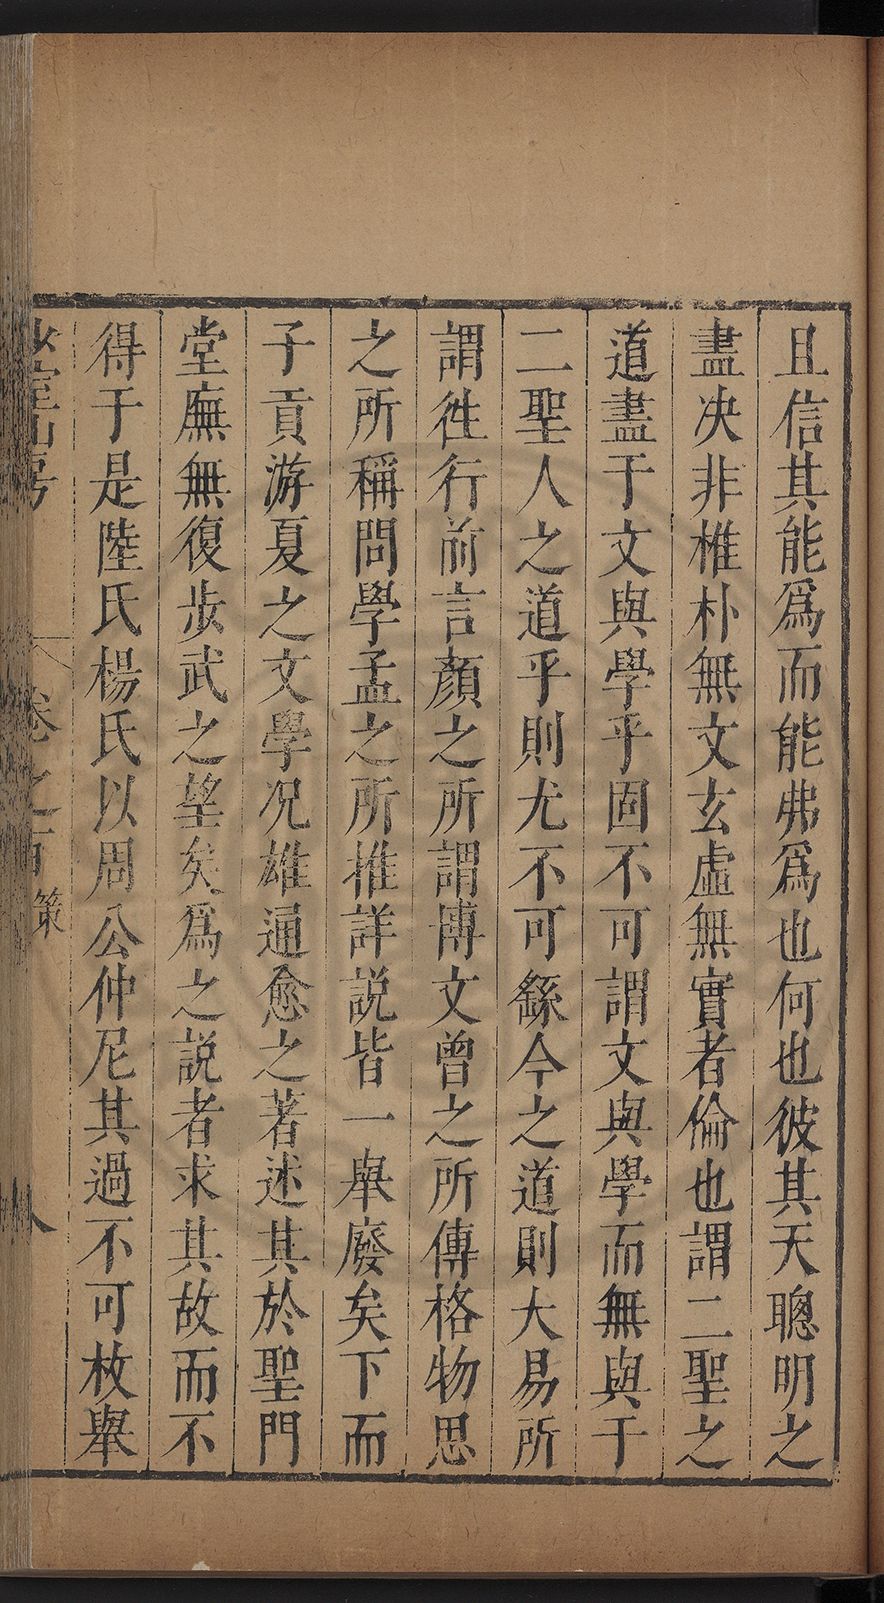 且信其能爲而能弗爲也何也彼其天聰明之
盡决非椎朴無文玄虛無實者倫也謂二聖之
道盡于文與學乎固不可謂文與學而無與于
二聖人之道乎則尤不可繇今之道則大易所
謂徃行前言顏之所謂博文曾之所傳格物思
之所稱問學孟之所推詳說皆一舉廢矣下而
子貢游夏之文學况雄通愈之著述其於聖門
堂廡無復步武之望矣爲之說者求其故而不
得于是陸氏楊氏以周公仲尼其過不可枚舉
室山房 卷之百 策 八